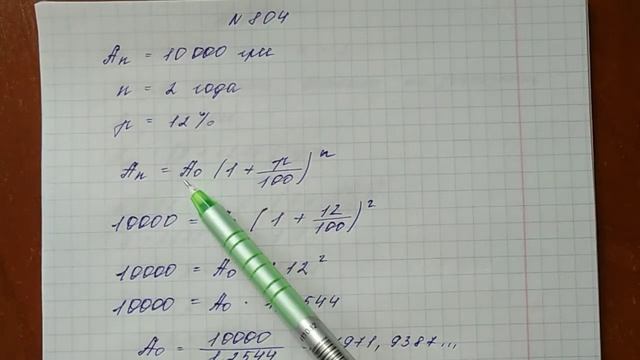 N 804
Aₙ = 10000 грн
n = 2 года
p = 12%
Aₙ = A₀ (1 + p/100)ⁿ
10000 = (1 + 12/100)²
10000 = A₀ · 12²
10000 = A₀ · 544
A₀ = 10000/1,2544 = 971,9387...